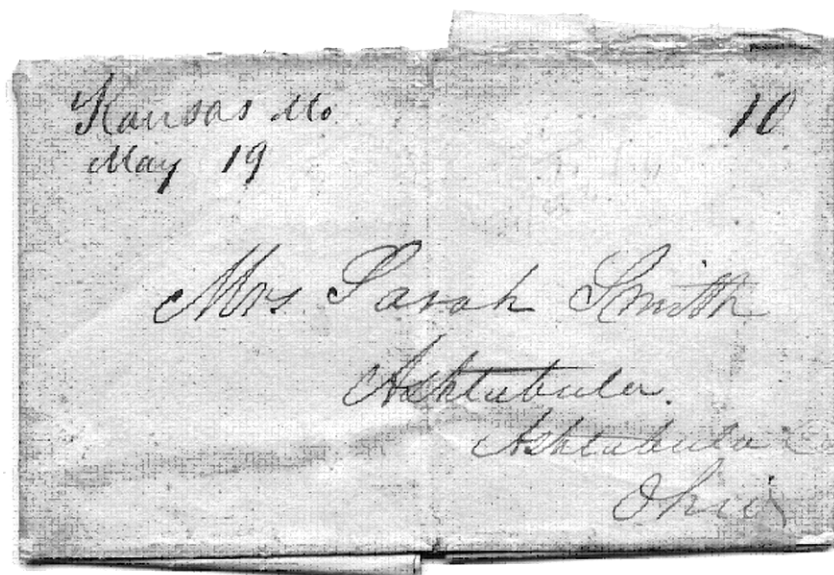 Kansas Mo
May 19
10
Mrs. Sarah Smith
Ashtabula.
Ashtabula Co
Ohio